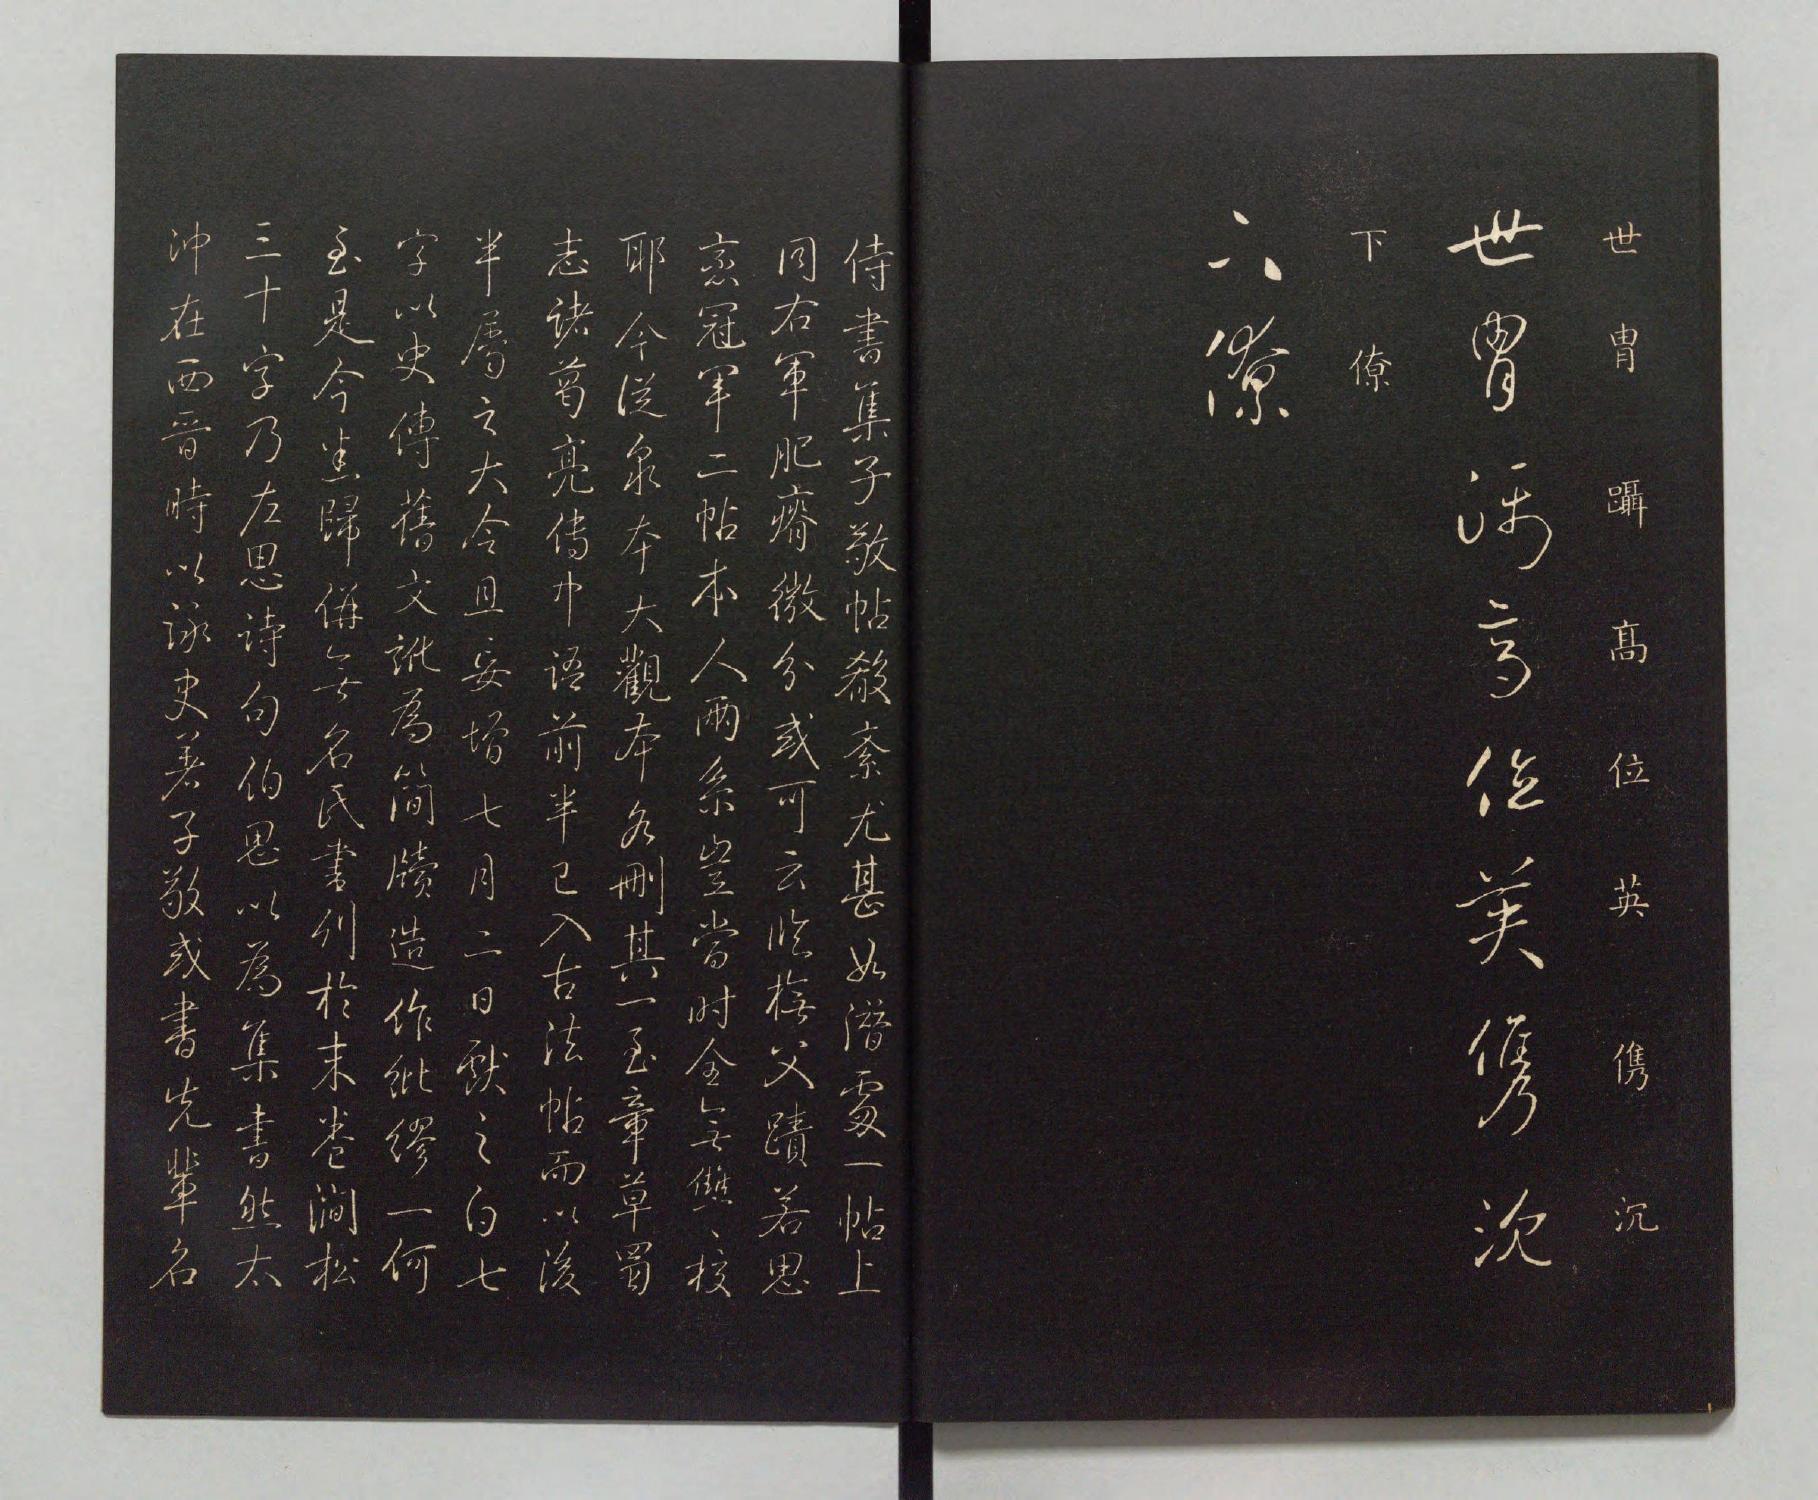 世胄躡高位英儁沉
世胄躡高位英儁沉
下僚
下僚
侍書集子敬帖殽紊尤甚如潛處一帖上
同右軍肥瘠微分或可云臨橅父蹟若思
戀冠軍二帖本人兩系豈當时全無讎〻校
耶今從泉本大觀本各刪其一至章草蜀
志諸葛亮傳中語前半已入古法帖而以後
半屬之大令且妄增七月二日獻之白七
字以史傳舊文訛為簡牘造作紕繆一何
至是今坐歸偽無名氏書列於末卷澗松
三十字乃左思詩句伯思以為集書然太
沖在西晉時以詠史著子敬或書先輩名